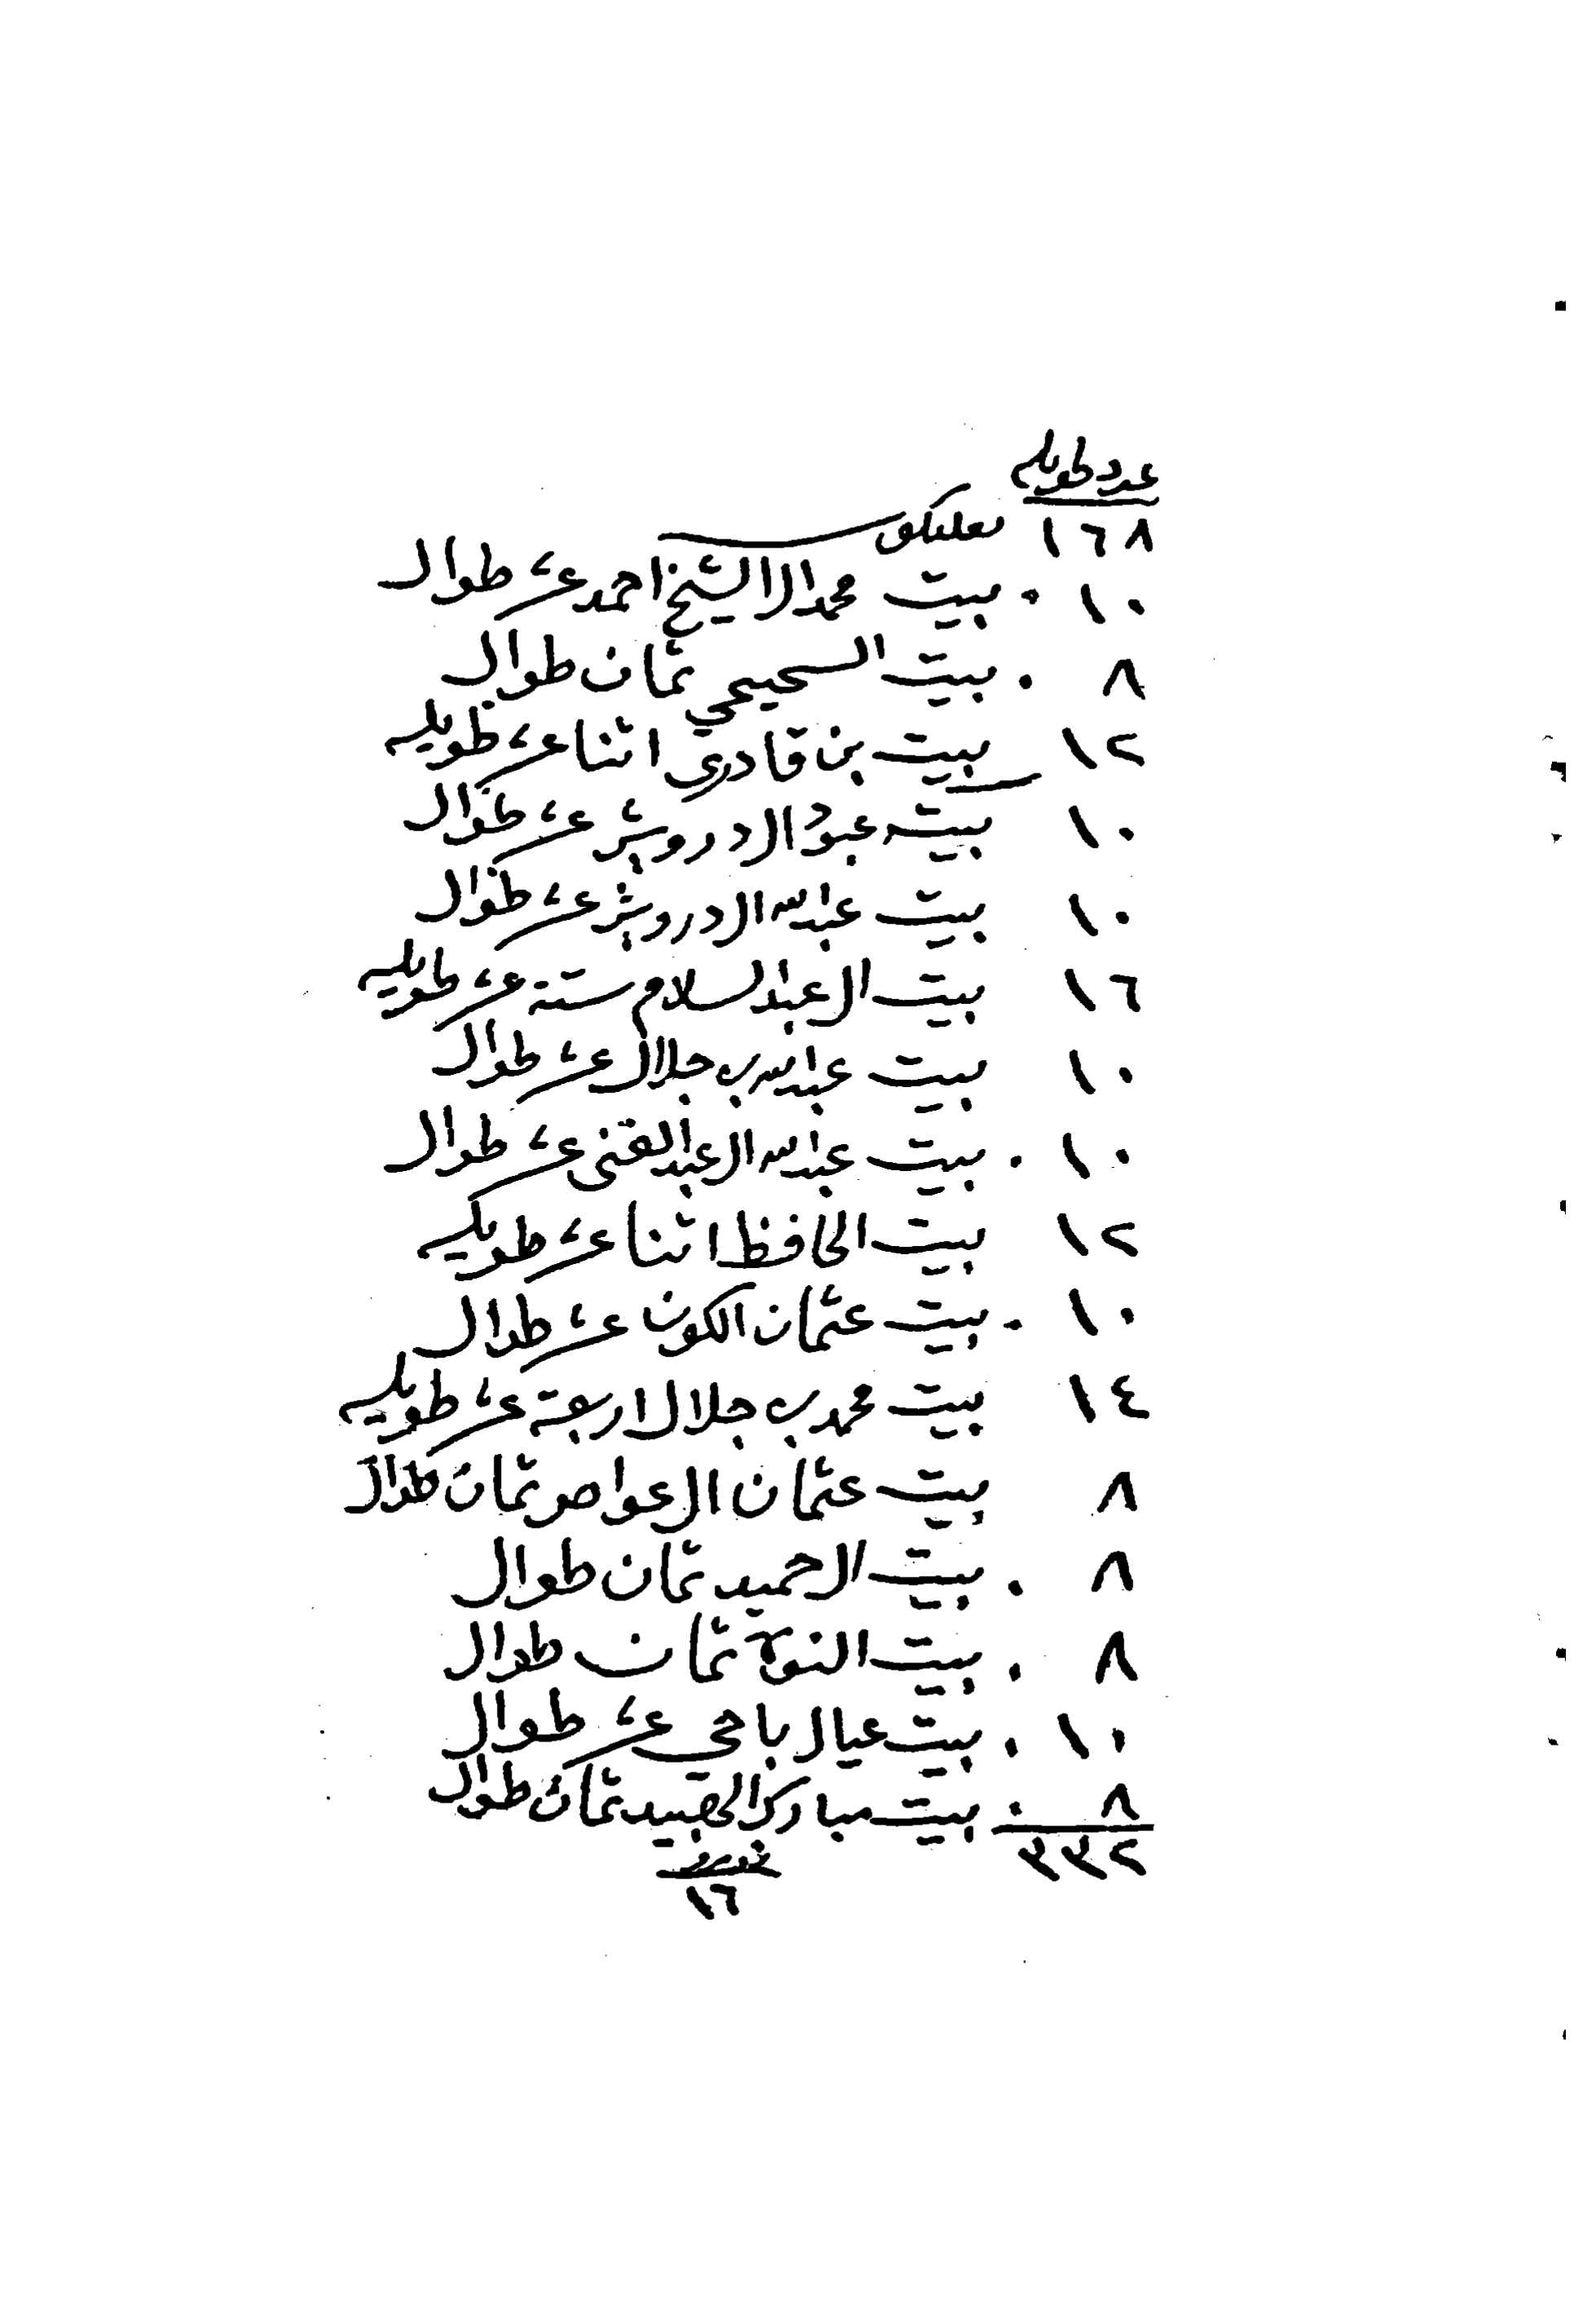 عدد طويله
١٦٨
١٠ . بيت محمد ال الشيخ احمد عشر طوال
٨ . بيت السحيمي ثمان طوال
١٢ بيت بن قادري اثنا عشر طويله
١٠ بيت ال درويش عشر طوال
١٠ بيت عبدالله ال درويش عشر طوال
١٦ بيت ال عبدالسلام ستة عشر طويله
١٠ بيت عبدالله بن جلال عشر طوال
١٠ . بيت عبدالله ال عبدالغني عشر طوال
١٢ بيت الحافظ اثنا عشر طويله
١٠ . بيت عثمان عشر طوال
١٤ بيت محمد بن جلال اربعة عشر طويله
٨ بيت عثمان ال عواض ثمان طوال
٨ . بيت ال حميد ثمان طوال
٨ . بيت النوبة ثمان طوال
١٠ . بيت عيال عشر طوال
٨ . بيت مبارك ثمان طوال
٣٣٢
١٦